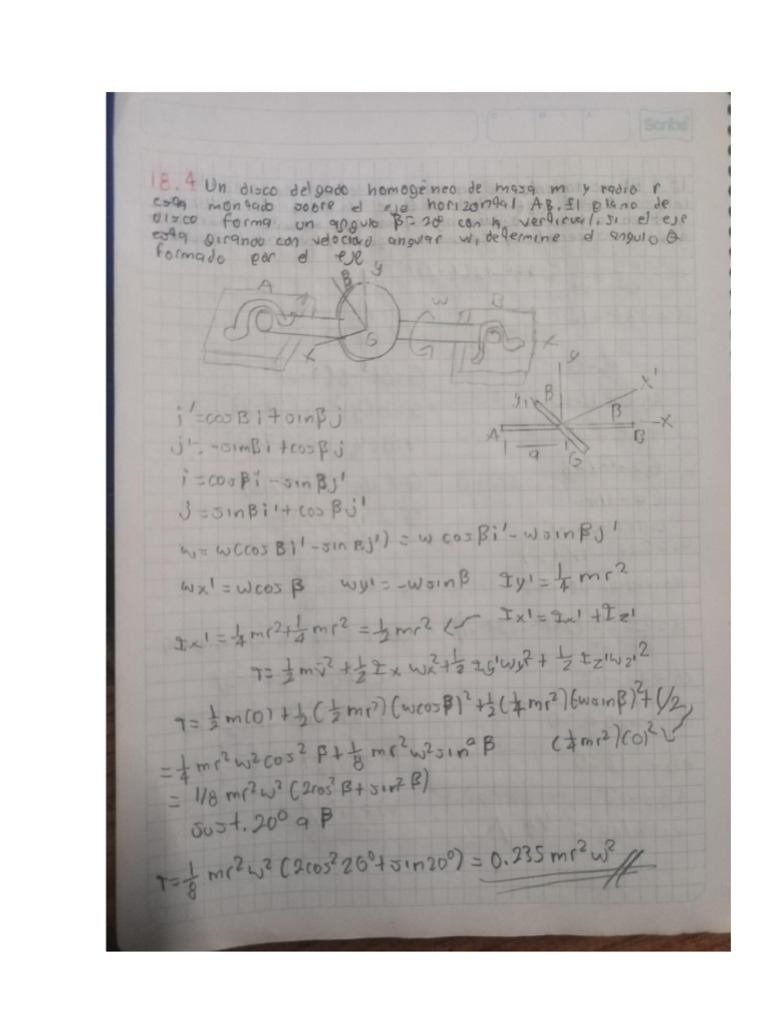 Scribe
18.4 Un disco delgado homogéneo de masa m y radio r
esta montado sobre el eje horizontal AB. El plano de
disco forma un angulo β=20° con la vertical. si el eje
esta girando con velocidad angular w, determine el angulo θ
formado por el eje
A B y w B G X x
y
y' B X' β
A B -X
a G
i'=cosβi+sinβj
j'=-sinβi+cosβj
i=cosβi'-sinβj'
j=sinβi'+cosβj'
w=w(cosβi'-sinβj')=w cosβi'-w sinβj'
wx'=wcosβ wy'=-wsinβ Iy'=1/4 mr²
Ix'=1/4mr²+1/4mr²=1/2mr² Ix'=Ix'+Iz'
T=1/2mv̄²+1/2Ix wx²+1/2Iy'wy²+1/2Iz'wz'²
T=1/2m(0)+1/2(1/2mr²)(wcosβ)²+1/2(1/4mr²)(-wsinβ)²+(1/2
(1/4mr²)(0)²
=1/4mr²w²cos²β+1/8mr²w²sin²β
=1/8mr²w²(2cos²β+sin²β)
sust. 20° a β
T=1/8mr²w²(2cos²20°+sin20°)=0.235mr²w²